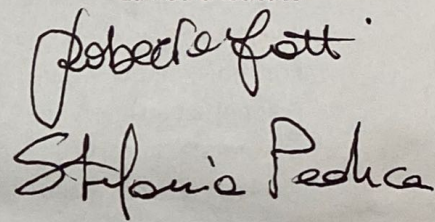 Roberta Gotti
Stefania Pedica